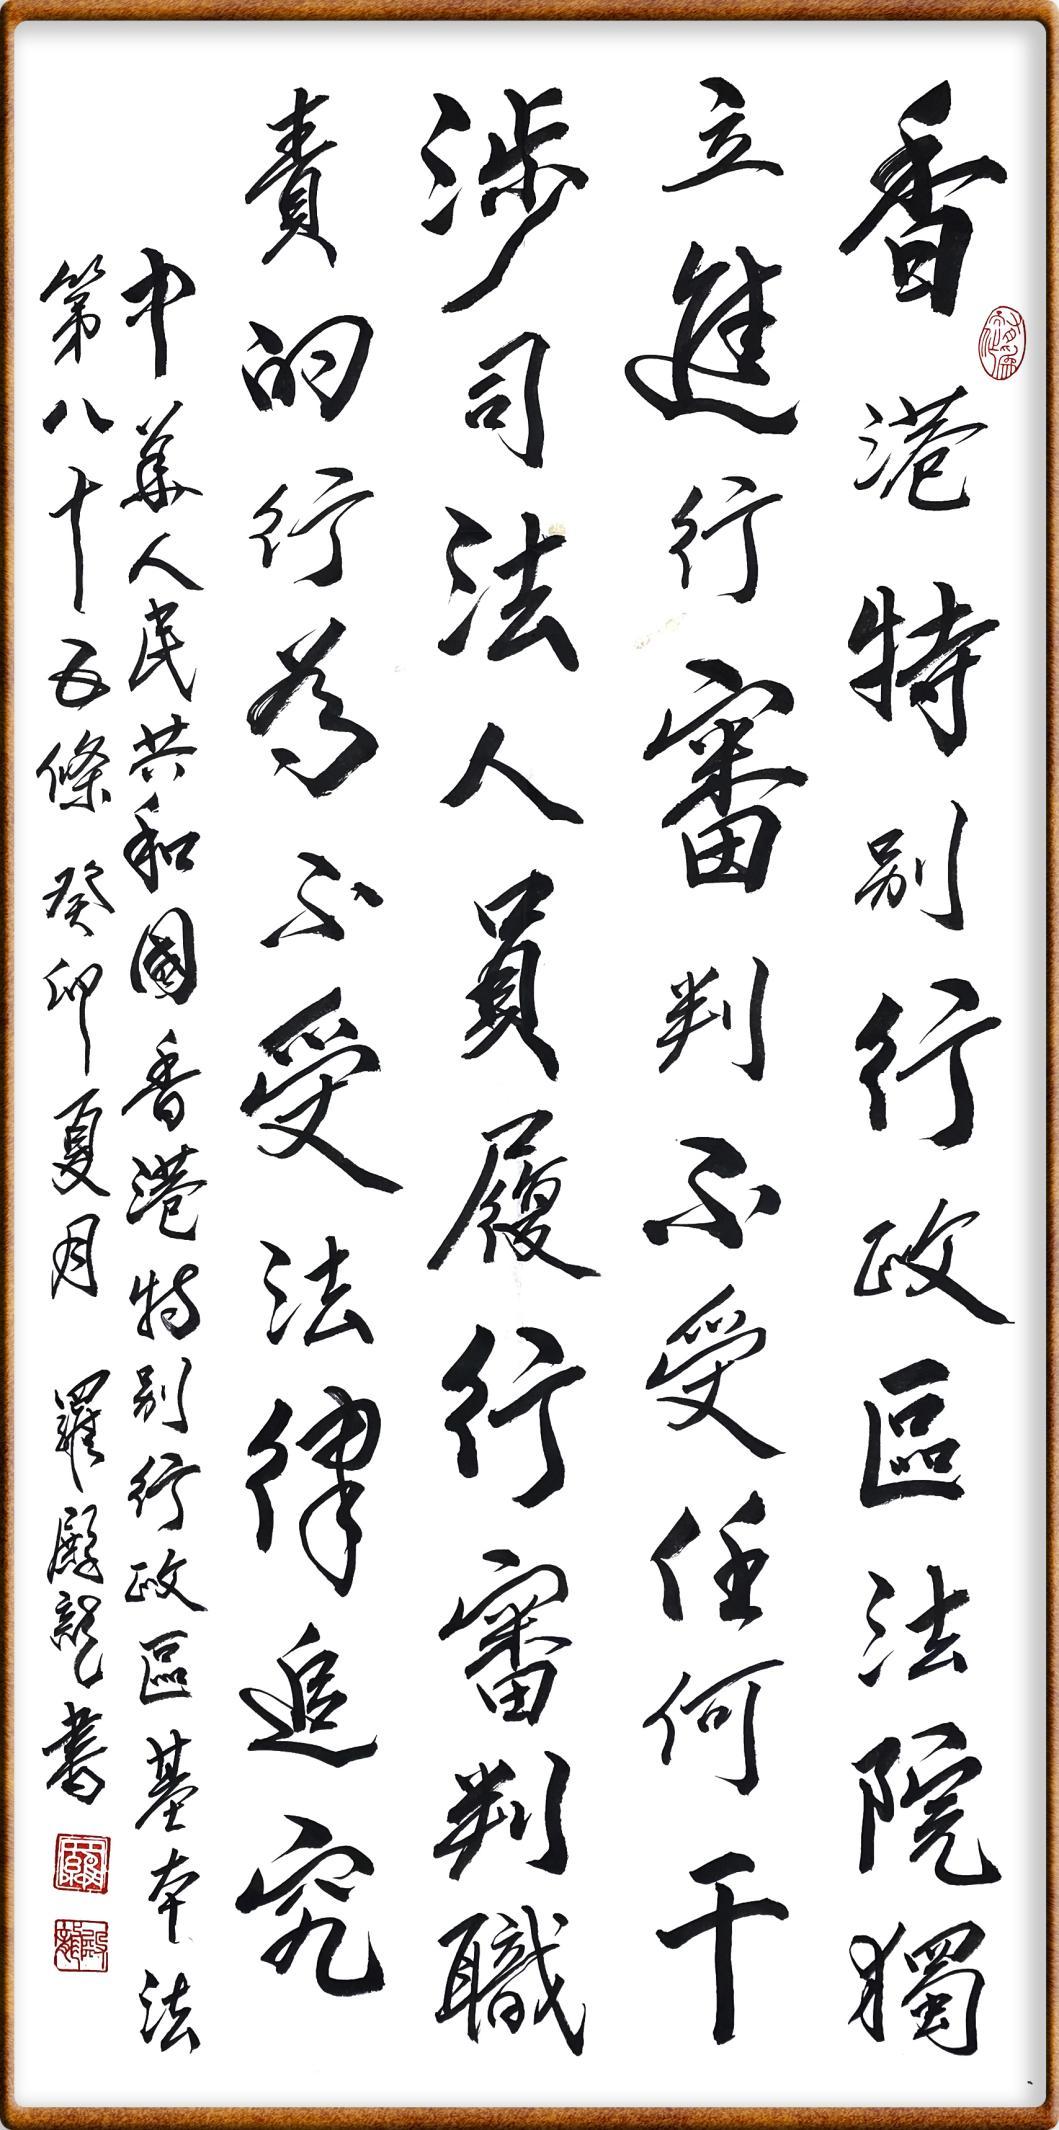 香港特別行政區法院獨
立進行審判不受任何干
涉司法人員履行審判職
責的行為不受法律追究
中華人民共和國香港特別行政區基本法
第八十五條 癸卯夏月 羅殿龍書
羅
殿龍